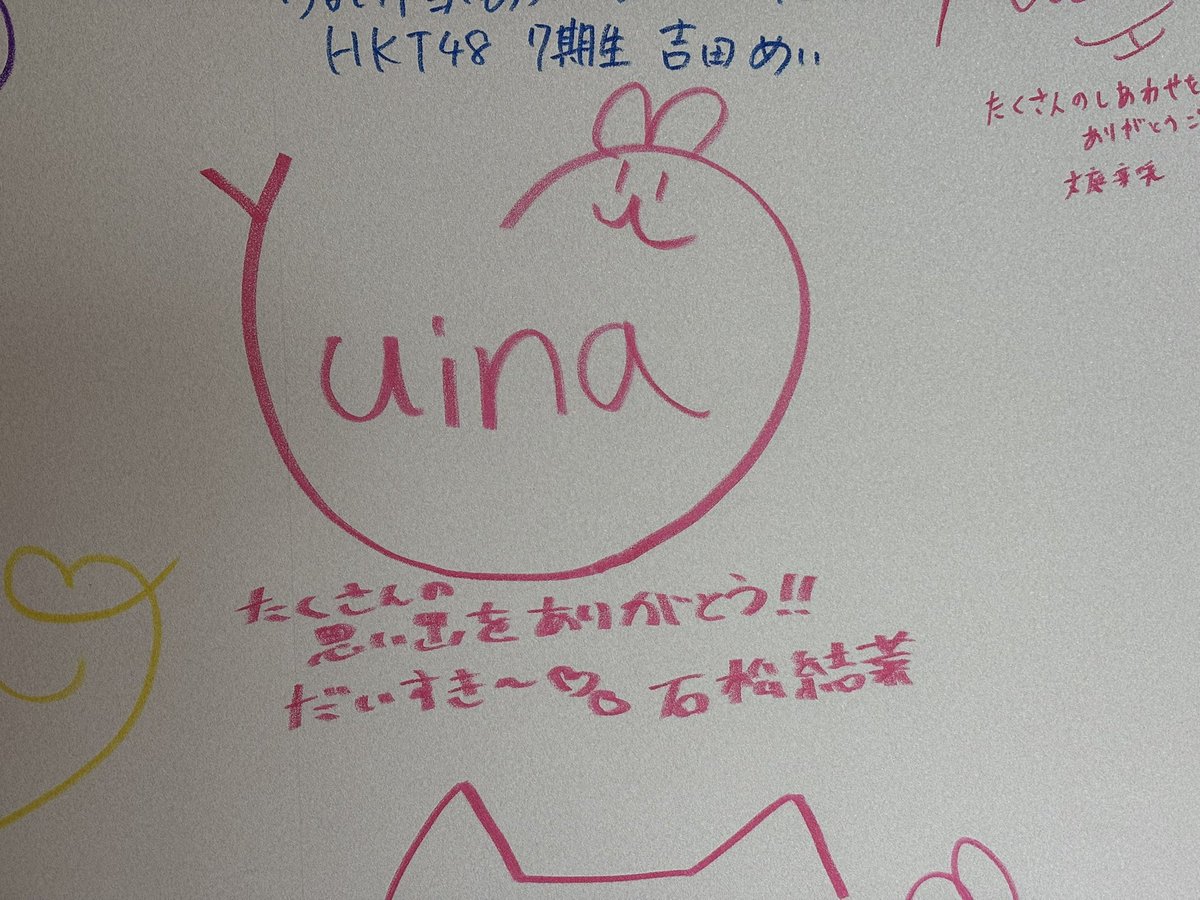 HKT48 7期生 吉田めい
たくさんのしあわせを
ありがとうご
Yuina
たくさんの
思い出をありがとう!!
だいすき〜 石松結菜